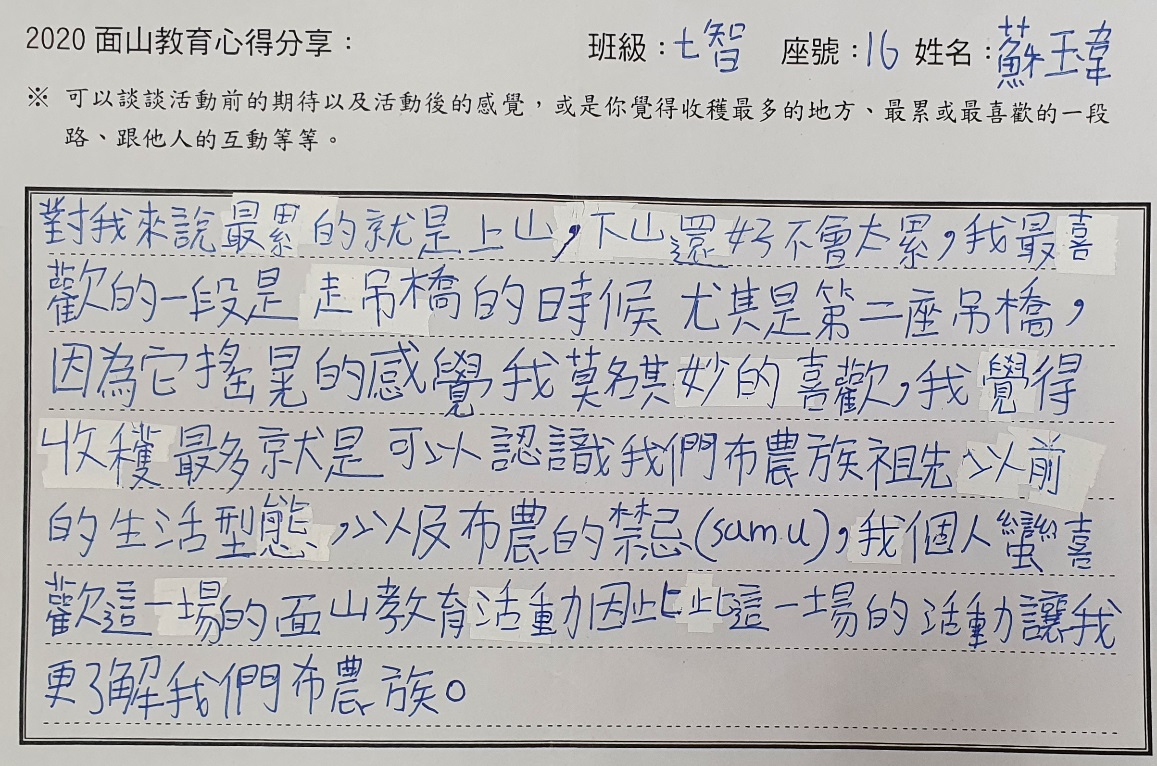 2020 面山教育心得分享： 班級：七智 座號：16 姓名：蘇玉瑋
※ 可以談談活動前的期待以及活動後的感覺，或是你覺得收穫最多的地方、最累或最喜歡的一段
路、跟他人的互動等等。
對我來說最累的就是上山，下山還好不會太累，我最喜
歡的一段是走吊橋的時候尤其是第二座吊橋，
因為它搖晃的感覺我莫名其妙的喜歡，我覺得
收穫最多就是可以認識我們布農族祖先以前
的生活型態，以及布農的禁忌(samu)，我個人蠻喜
歡這一場的面山教育活動因此此這一場的活動讓我
更了解我們布農族。